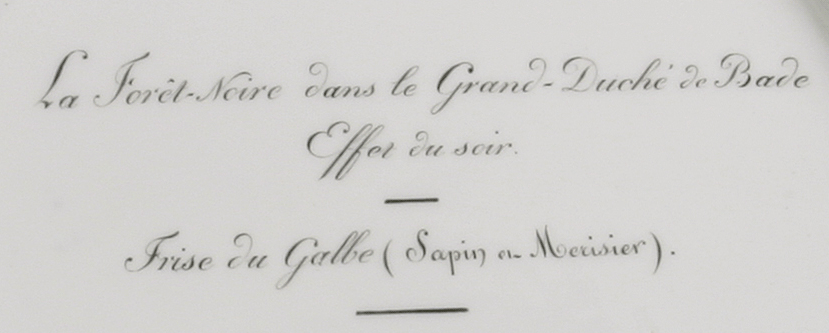 La Forêt-Noire dans le Grand-Duché de Bade
Effet du soir.
Frise du Galbe ( Sapin ou Merisier ).